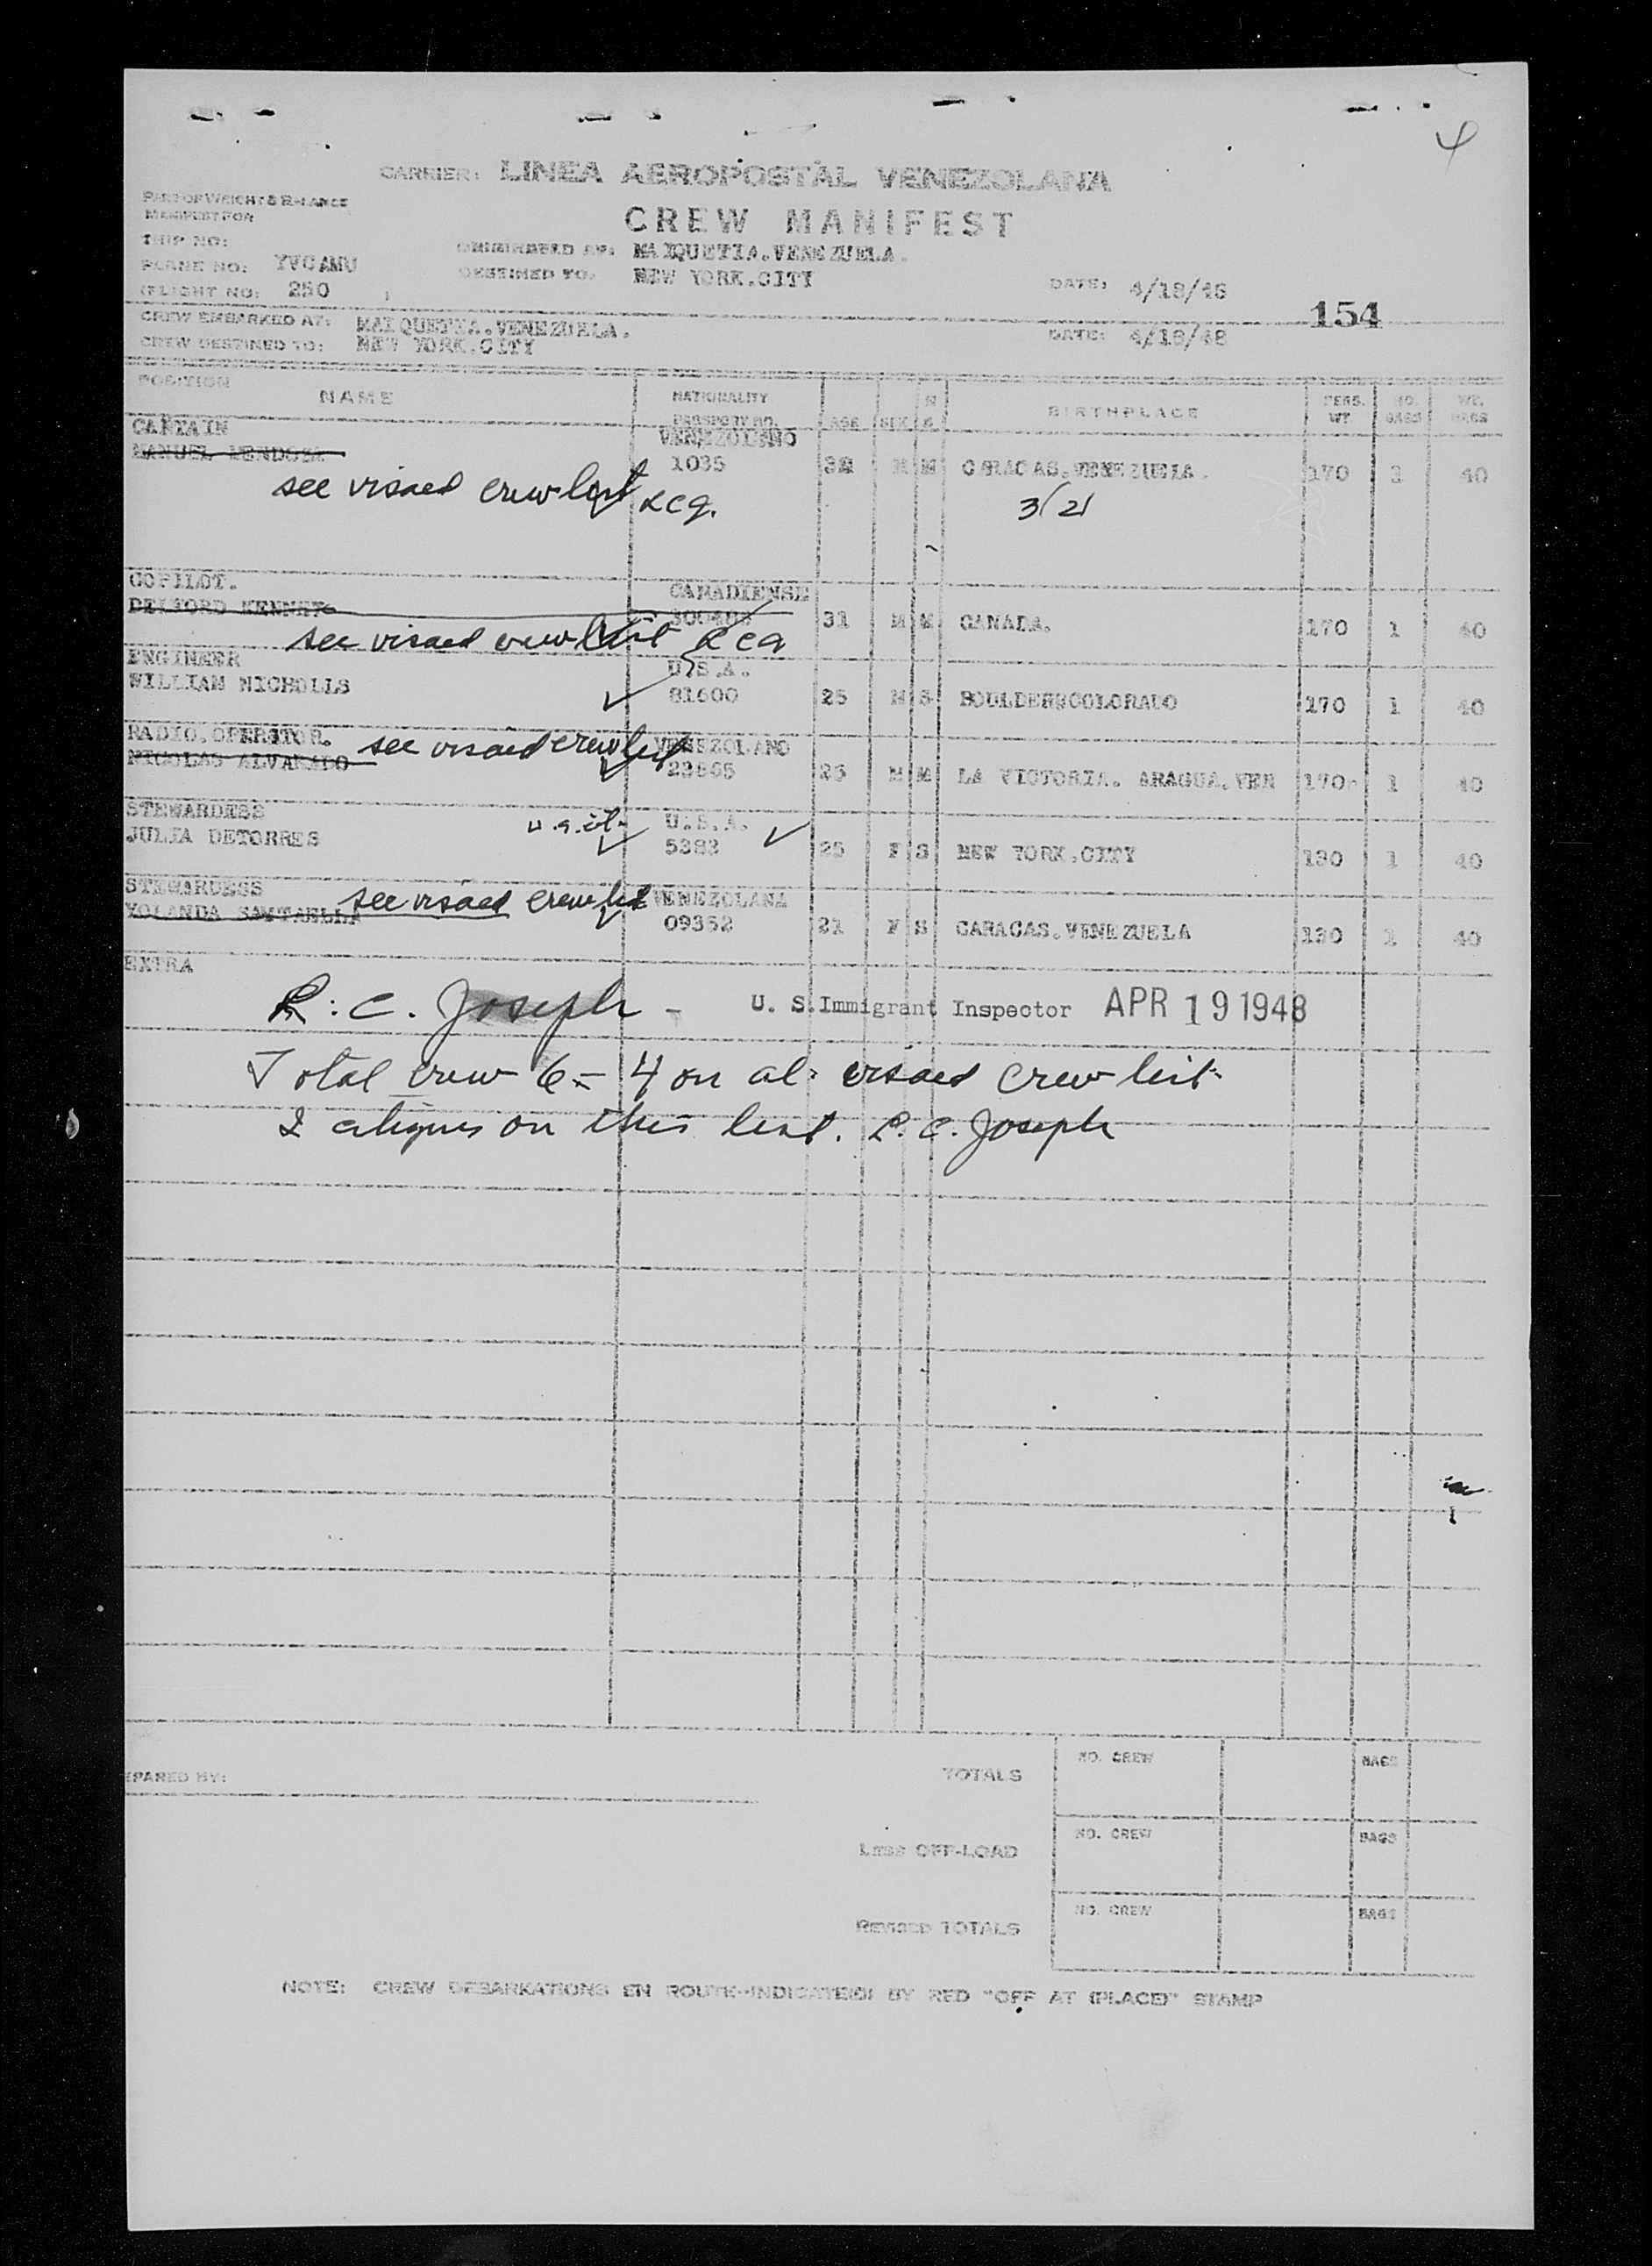 4
CARRIER: LINEA AEROPOSTAL VENEZOLANA
PART OF WEIGHT & BALANCE
MANIFEST FOR
CREW MANIFEST
SHIP NO:
MAIQUETIA.VENEZUELA.
PLANE NO: YVCAMU
DESTINED TO: NEW YORK.CITY
DATE: 4/18/48
FLIGHT NO: 250
154
CREW EMBARKED AT: MAIQUETIA.VENEZUELA.
DATE: 4/18/48
CREW DESTINED TO: NEW YORK.CITY
POSITION NAME NATIONALITY PASSPORT NO. AGE SEX BIRTHPLACE PERS. WT. NO. BAGS WT. BAGS
CAPTAIN VENEZOLANO
MANUEL MENDOZA 1035 32 M M CARACAS.VENEZUELA. 170 1 40
see visaed crew list 3/21
COPILOT. CANADIENSE
31 M M CANADA. 170 1 40
see visaed crew list
ENGINEER U.S.A.
WILLIAN NICHOLLS 81600 25 M S 170 1 40
RADIO.OPERATOR. see visaed crew list VENEZOLANO
NICOLAS ALVARADO 25 M M LA VICTORIA. ARAGUA.VEN 170 1 40
STEWARDESS U.S.A.
JULIA DETORRES 5383 25 F S NEW YORK.CITY 130 1 40
STEWARDESS see visaed crew list VENEZOLANA
YOLANDA 09352 21 F S CARACAS.VENEZUELA 130 1 40
EXTRA
L. C. Joseph - U. S. Immigrant Inspector APR 19 1948
Total crew 6 - 4 on al. visaed crew list
2 on this list. L. C. Joseph
EPARED BY:
TOTALS NO. CREW BAGS
LESS OFF-LOAD NO. CREW BAGS
REVISED TOTALS NO. CREW BAGS
NOTE: CREW DEBARKATIONS EN ROUTE-INDICATE(D) BY RED "OFF AT (PLACE)" STAMP